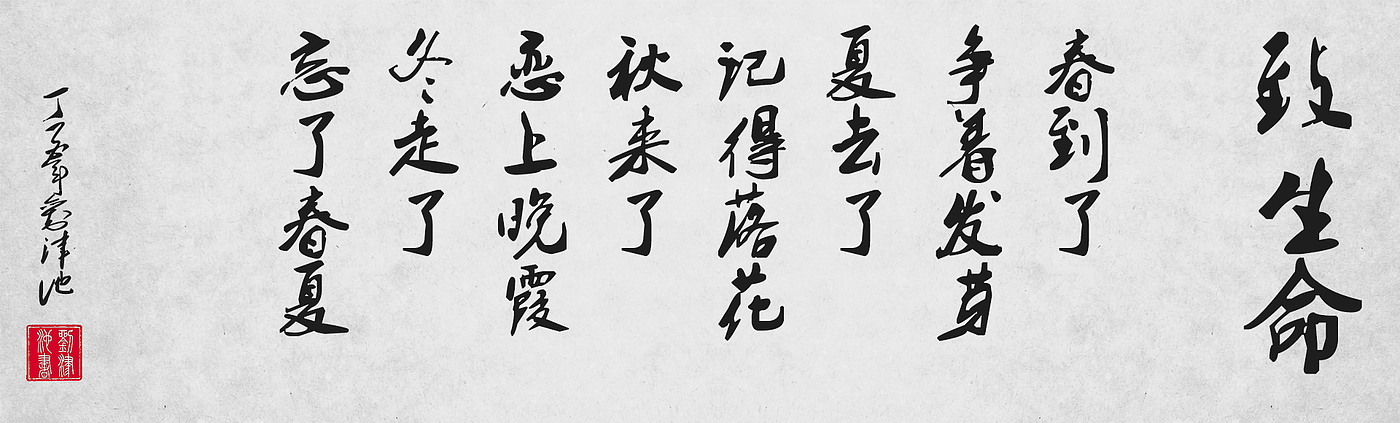 致生命
春到了
争着发芽
夏去了
记得落花
秋来了
恋上晚霞
冬走了
忘了春夏
丁酉年刘津池
劉津
池書